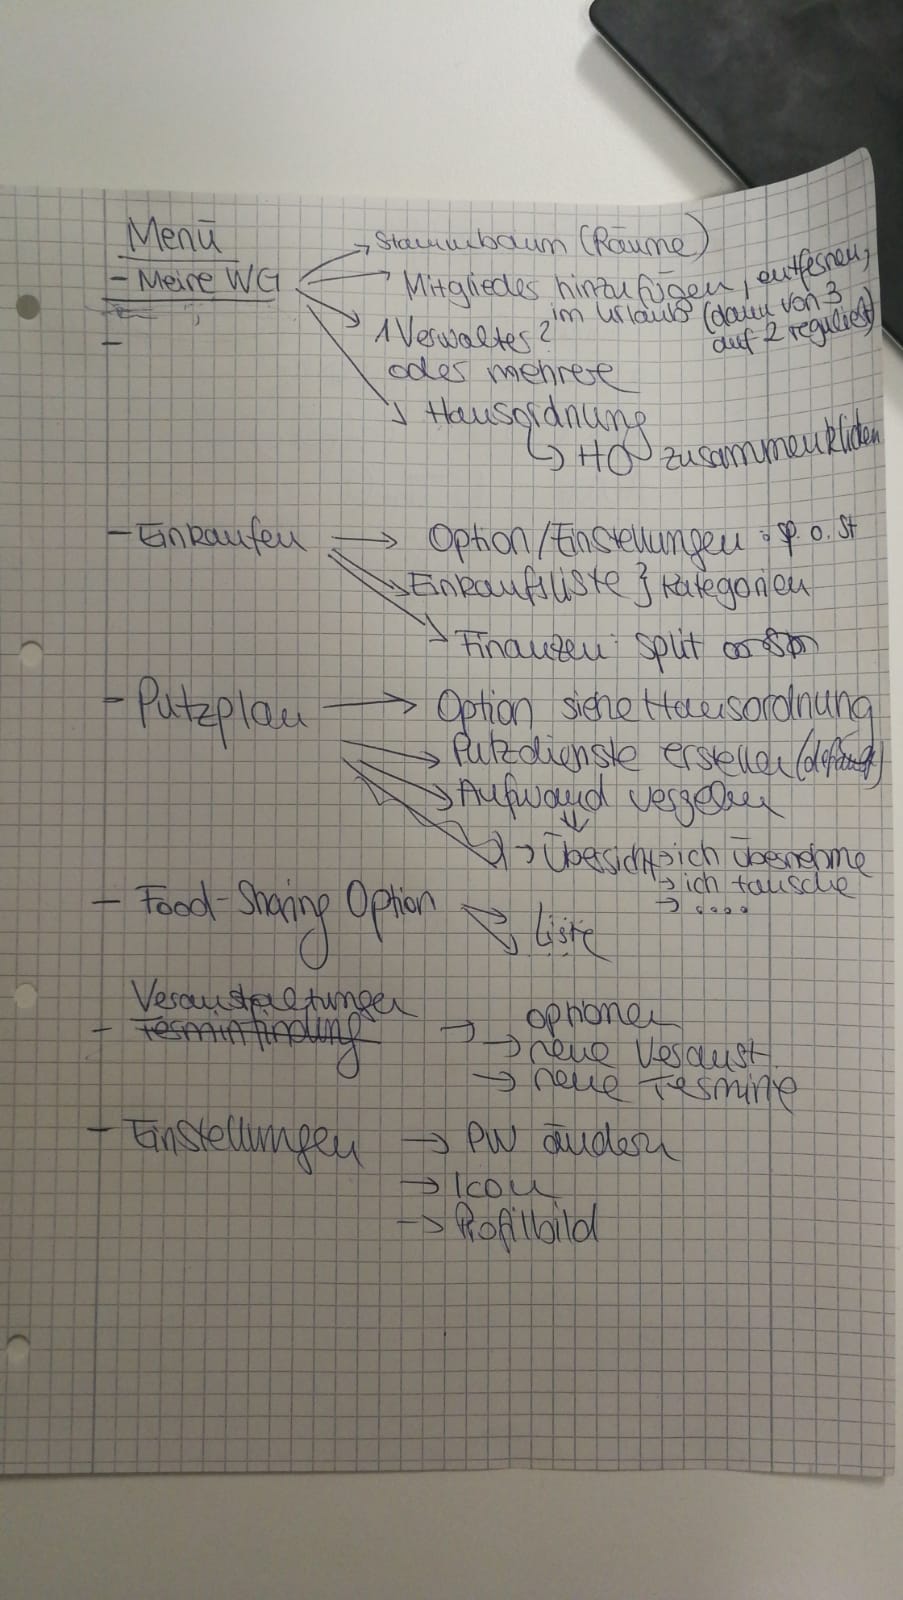 Menü
- Meine WG → Stammbaum (Räume)
→ Mitglieder hinzufügen, entfernen,
im Urlaub (dann von 3
auf 2 reguliert)
→ 1 Verwalter?
oder mehrere
→ Hausordnung
↳ HO zusammenkliden
-
- Einkaufen → Option/Einstellungen: sp. o. St
→ Einkaufsliste } Kategorien
→ Finanzen: split or
- Putzplan → Option siehe Hausordnung
→ Putzdienste erstellen (default)
→ Aufwand
→ Übersicht → ich übernehme
→ ich tausche
→ ....
- Food-Sharing Option
→ Liste
Veranstaltungen
- Terminfindung → optionen
→ neue Veranst.
→ neue Termine
- Einstellungen → PW ändern
→ Icon
→ Profilbild